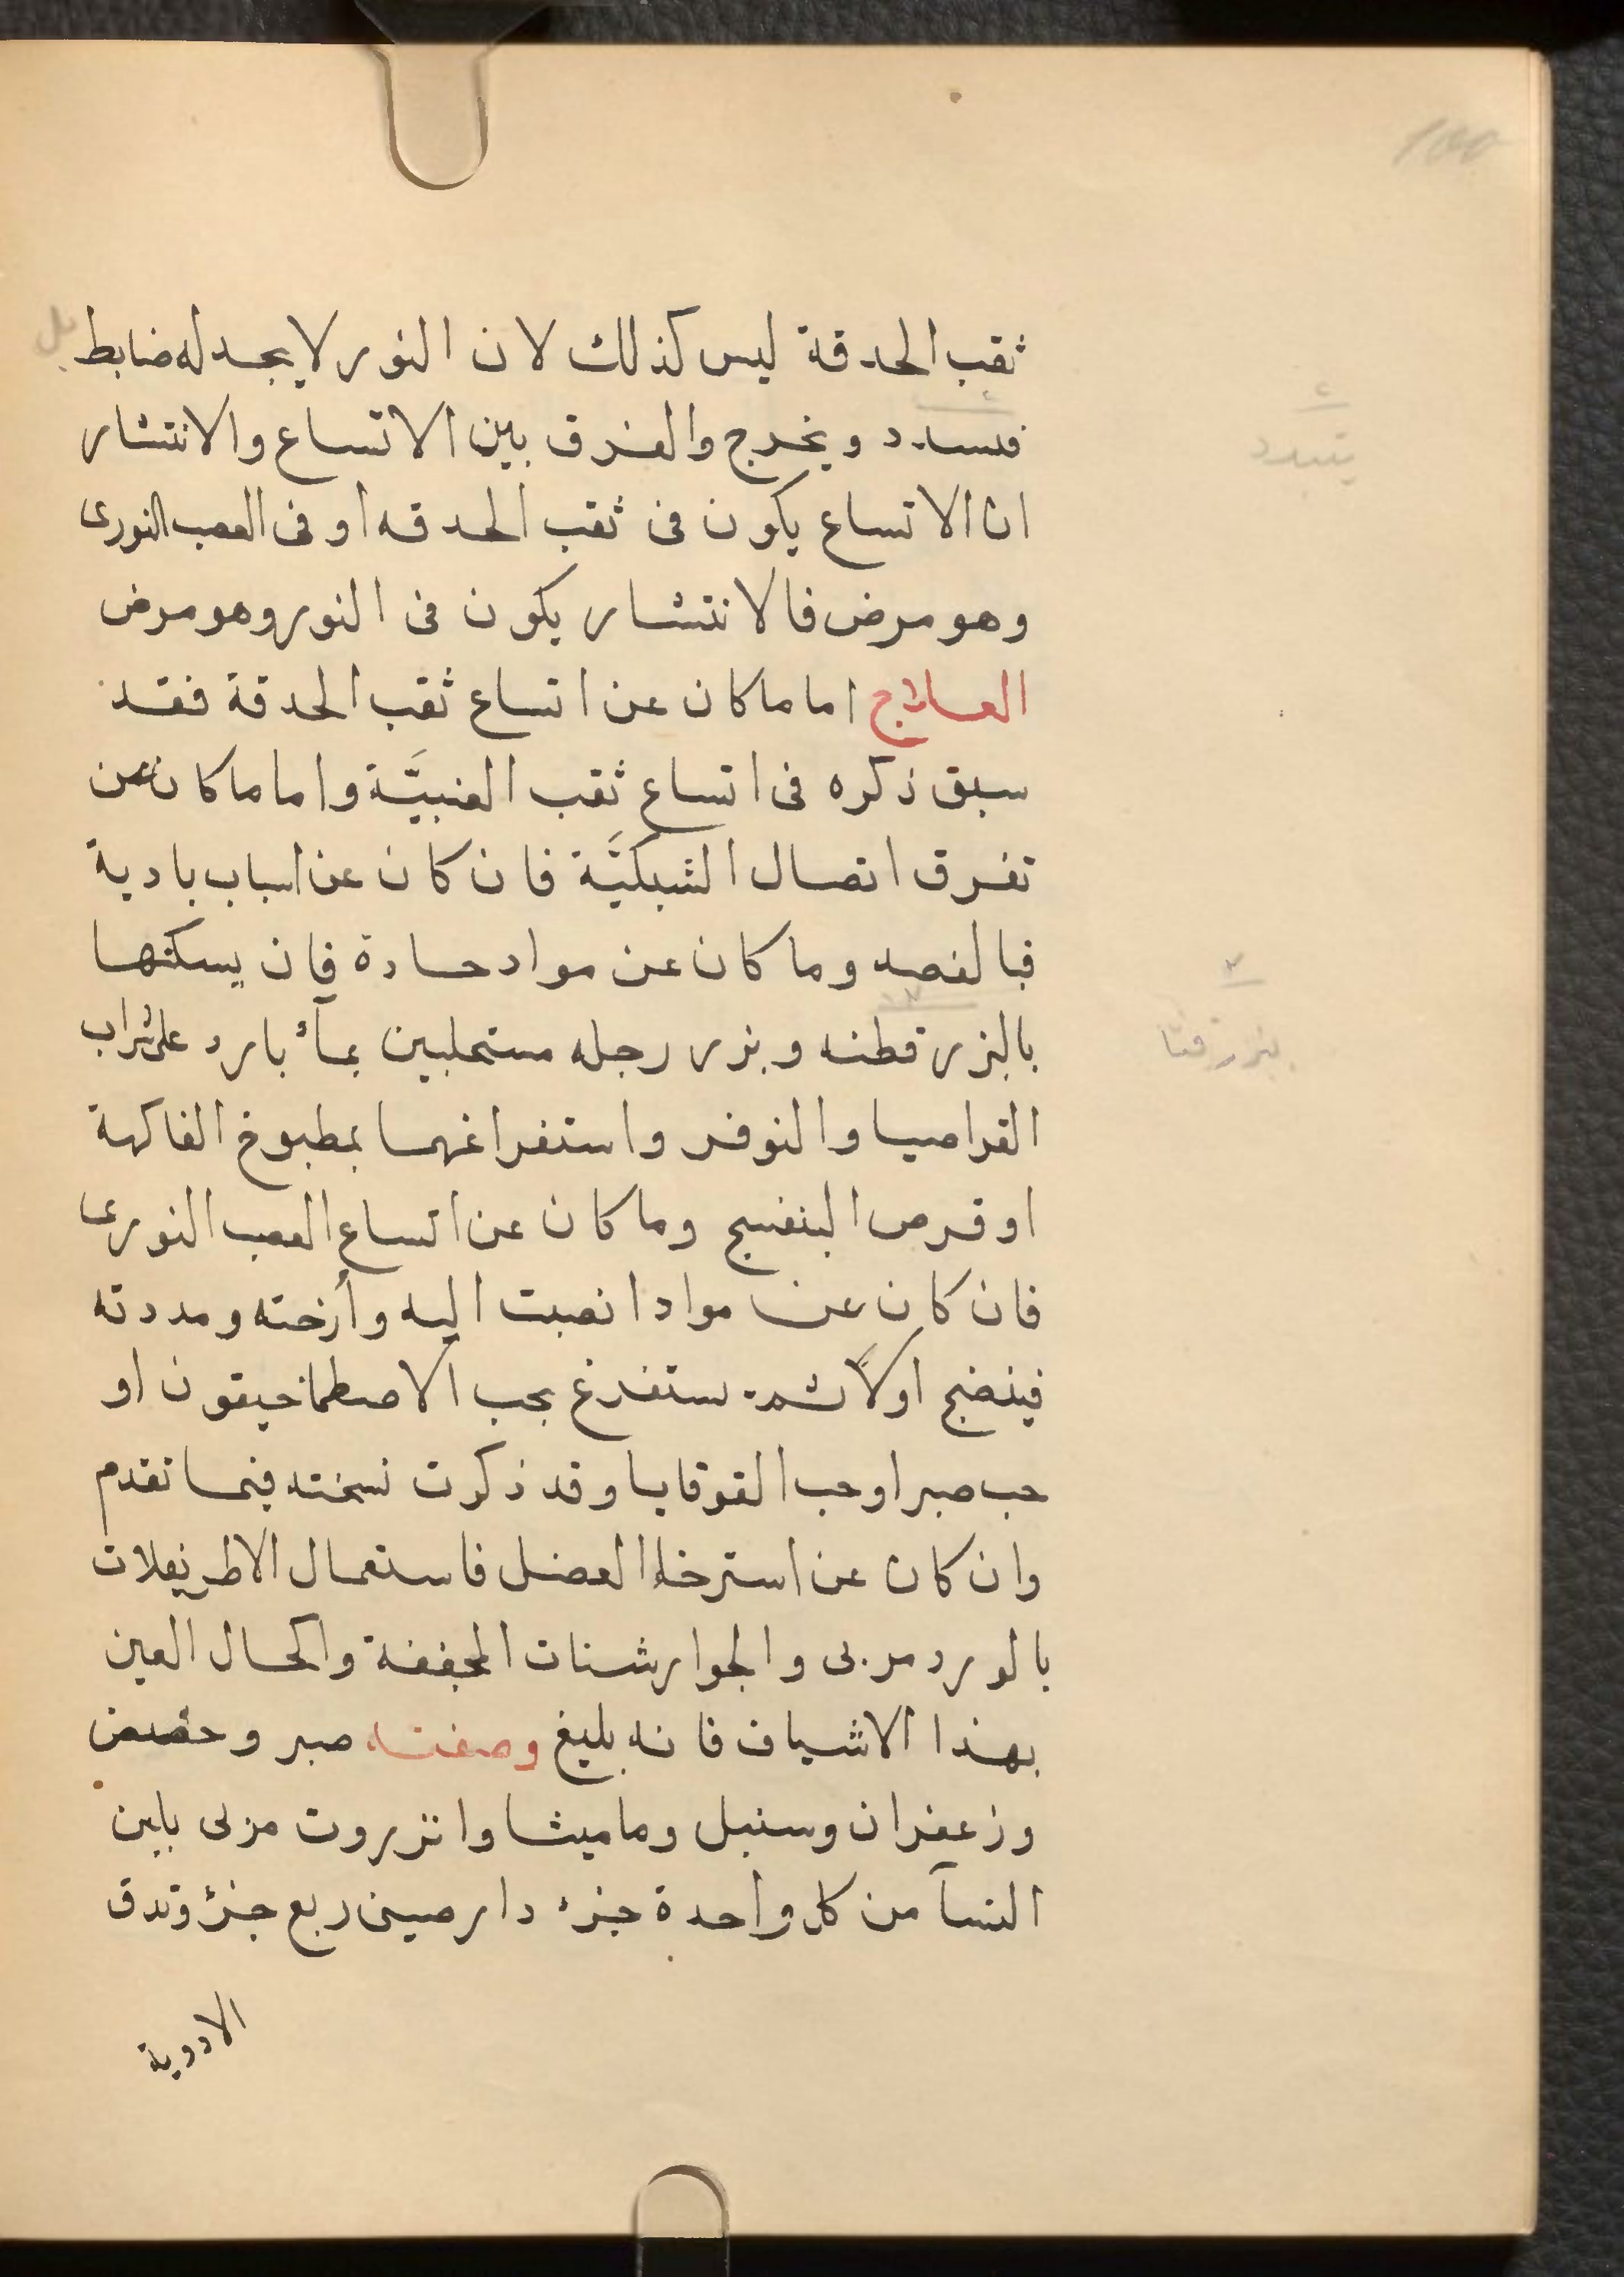 ثقب الحدقة ليس كذلك لان النور لا يجد له ضابط بل
فسدد ويخرج والفرق بين الاتساع والانتشار
يتبدد
ان الاتساع يكون فى ثقب الحدقه او فى العصب النورى
وهو مرض فالانتشار يكون فى النور وهو مرض
العلاج اما ما كان عن اتساع ثقب الحدقة فقد
سبق ذكره فى اتساع ثقب العنبيَّة واما ما كان عن
تفرق اتصال الشبكيَّة فان كان عن اسباب بادية
فبالفصد وما كان عن مواد حادة فان يسكنها
بالبزر قطنه وبزر رجله مستحلبين بمآء بارد على شراب
بزر قثا
القراصيا والنوفر واستفراغهما بمطبوخ الفاكهة
او قرص البنفسج وما كان عن اتساع العصب النورى
فان كان عن مواد انصبت اليه وأرخته ومددته
فينضج اولاً ثم يستفرغ بحب الاصطماخيقون او
حب صبر او حب القوقايا وقد ذكرت نسخته فيما تقدم
وان كان عن استرخاء العضل فاستعمال الاطريفلات
بالورد مربى والجوارشنات المجففة واكحال العين
بهذا الاشياف فانه بليغ وصفته صبر وحضض
وزعفران وسنبل وماميثا وانزروت مربى بلبن
النسآ من كل واحدة جزء دارصينى ربع جزء وتدق
الادوية